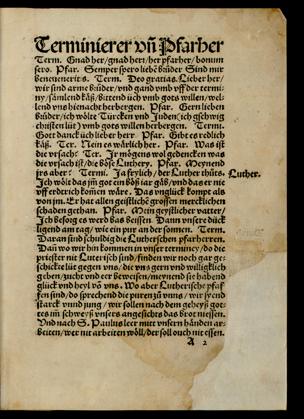 Terminierer vñ Pfarher
Term. Gnad her/ gnad herr/ her pfarher/ bonum
sero. Pfar. Semper spero liebe brüder Sind mir
benevenerit's. Term. Deo gratias. Lieber her/
wir sind arme brüder/ vnd gand vmb vff der termi-
ny/ samlend käß/ bittend uch vmb gots willen/ wel-
lend vns hienacht herbergen. Pfar. Gern lieben
brüder/ ich wolte Türcken vnd Juden (ich gschwig
christen lüt) vmb gots willen herbergen. Termi.
Gott danck üch lieber herr Pfar. Gibt es redlich
käß. Ter. Nein es wärlich her. Pfar. Was ist
die vrsach: Ter. Jr mögens wol gedencken was
die vrsach ist/ die böse Luthery. Pfar. Meynend
jrs aber: Termi. Ja frylich/ der Luther thůts.
Luther.
Jch wölt das jm̃ got ein böß jar gäb/ vnd das er nie
vff erdrich komen wäre. Das vnglück kompt als
von jm. Er hat allen geistliche grossen mercklichen
schaden gethan. Pfar. Mein geystlicher vatter/
Jch besorg es werd bas beissen. Dann vnsere dück
ligend am tag/ wie ein pur an der sonnen. Term.
Daran sind schuldig die Lutherischen pfarherren.
Dañ wo wir hin kommen in vnser terminey/ do der
priester nit Luterisch sind/ finden wir noch gar ge-
schickte lüt gegen vns/ die vns gern vnd williglich
geben/ zucht vnd eer beweisen/ meynend sie habend
glück vnd heyl vō vns. Wo aber Lutherische pfaf-
fen sind/ do sprechend die puren zů vnns/ wir syend
starck vnnd jung/ wir sollen nach dem geheyß got-
tes im̃ schweyß vnsers angesichts das brot niessen.
Vnd nach S. Paulus leer mitt vnsern händen ar-
beiten/ wer nit arbeiten wöll/ der soll ouch nit essen.
A 2